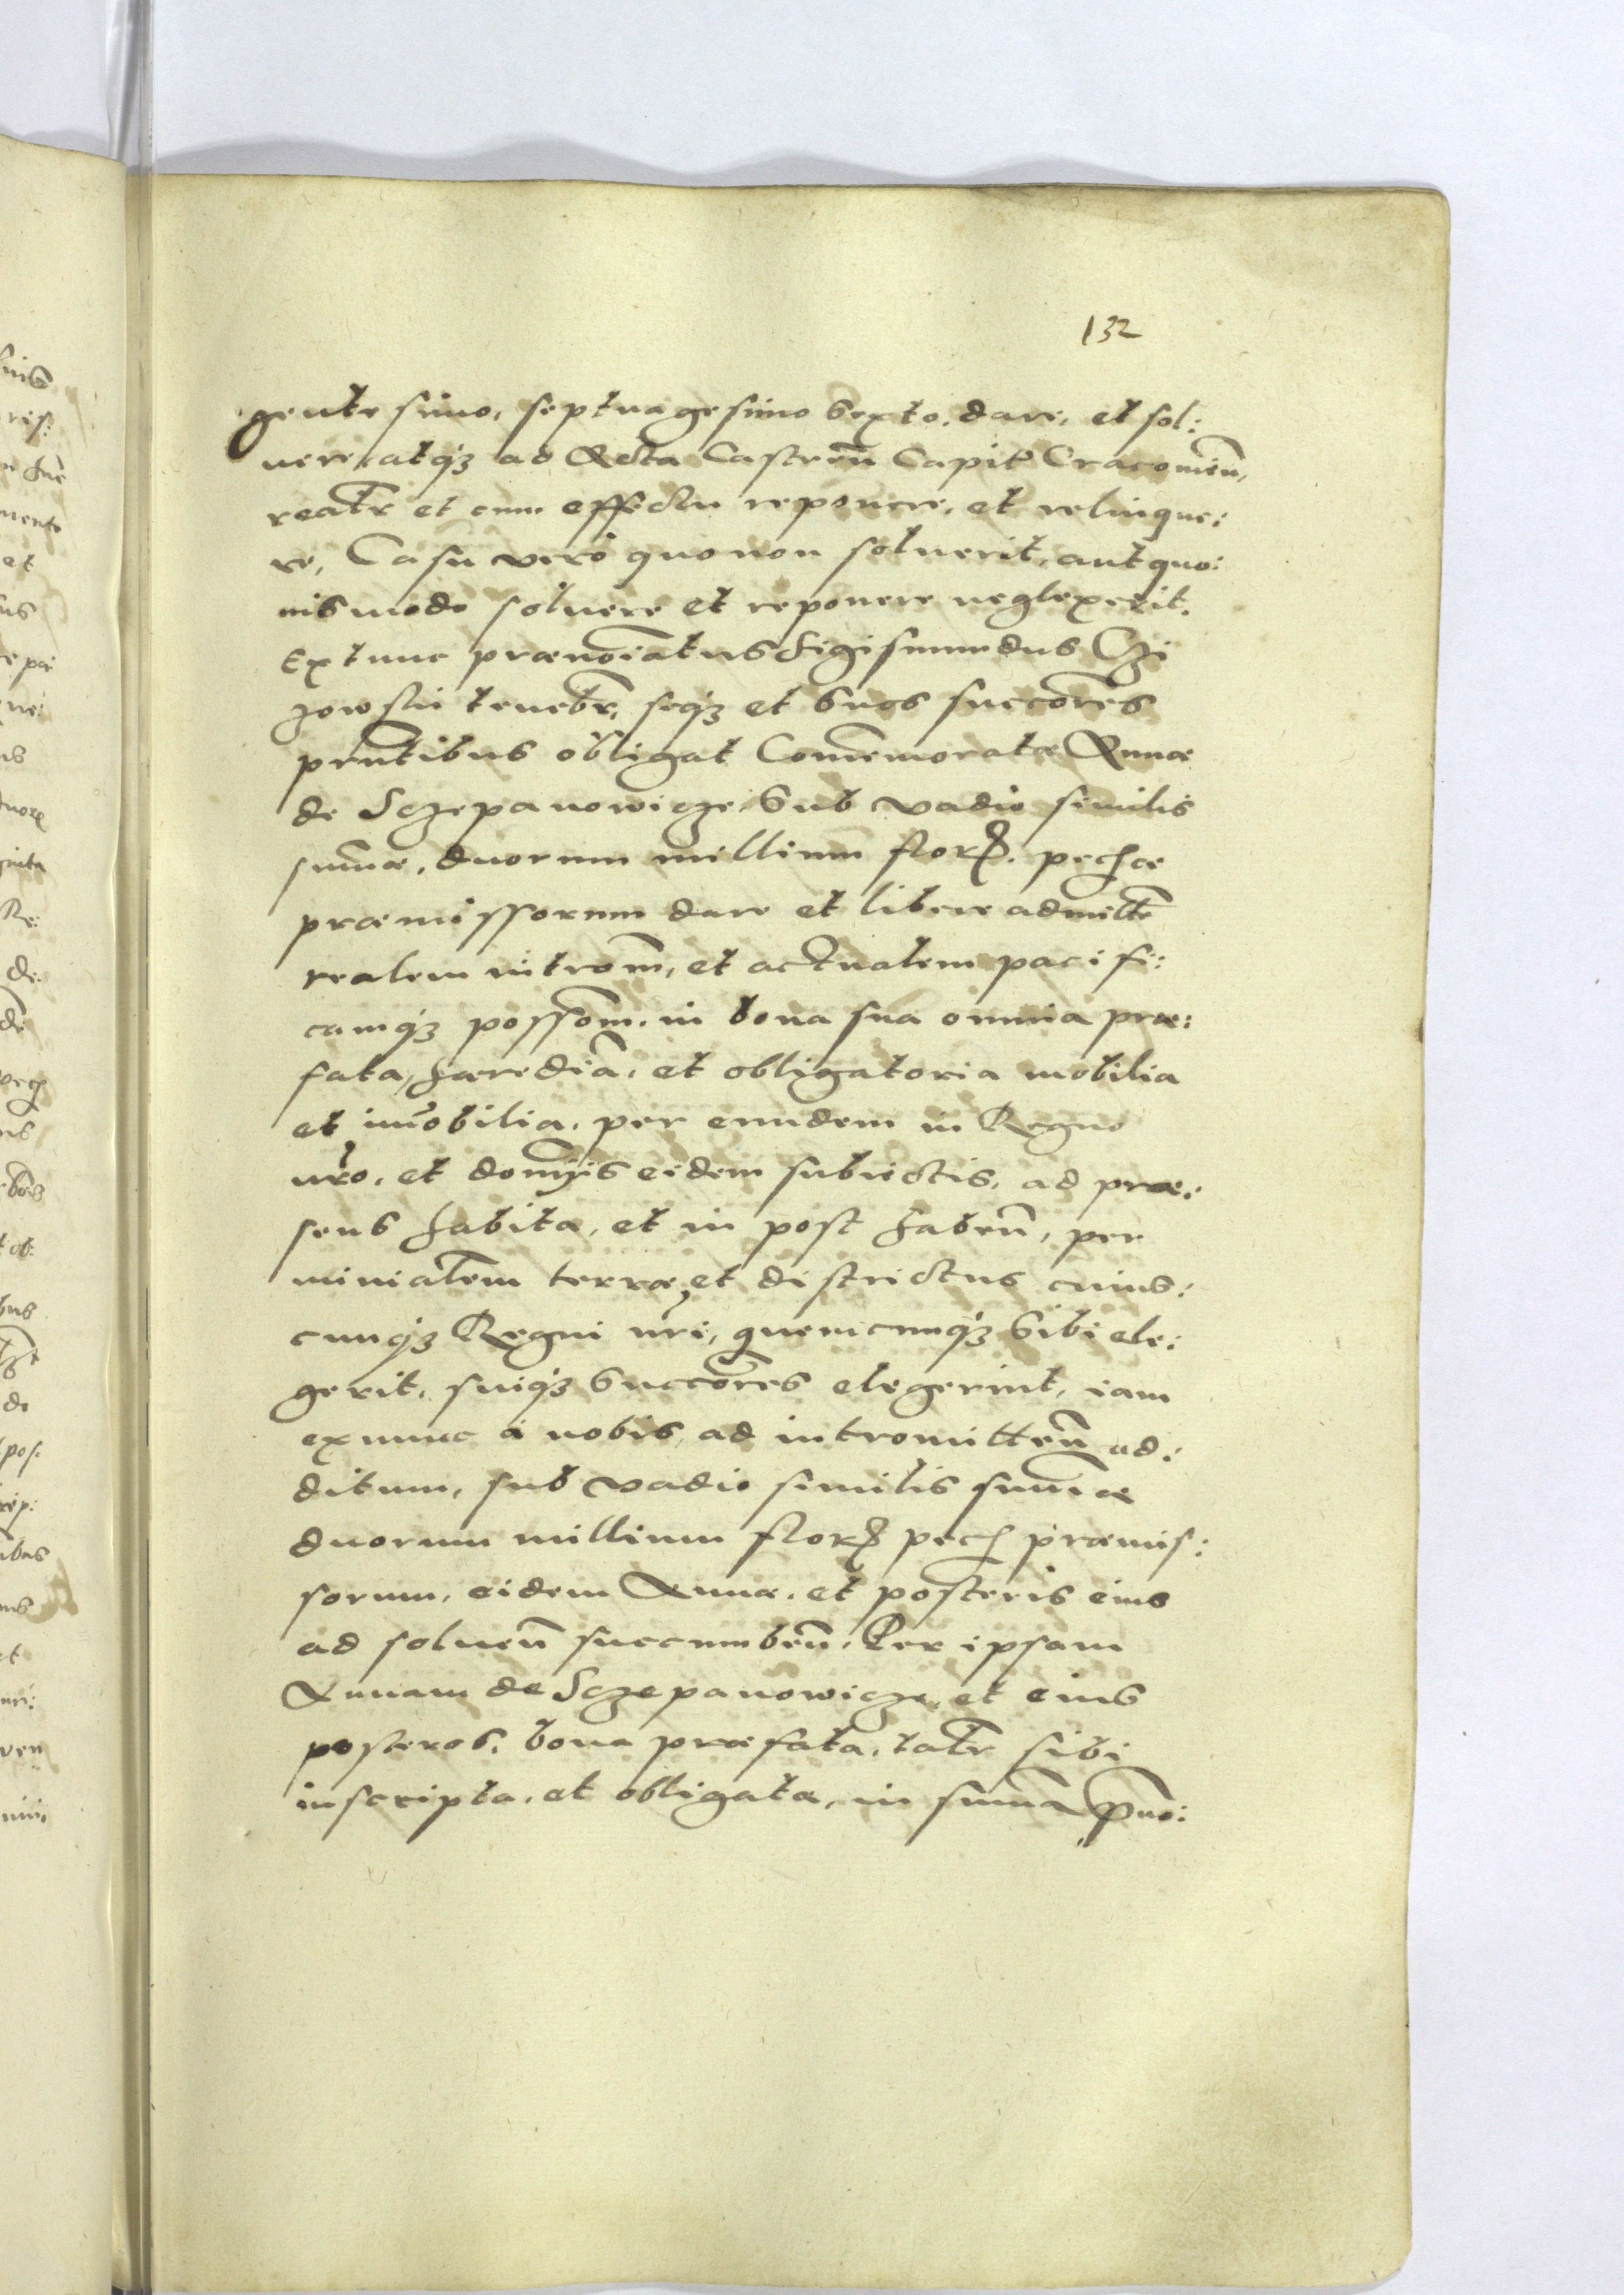 132
gentesimo, septuagesimo sexto, dare, et sol:
uere, atq3 ad Acta Castren̄ Capit Cracouien̄,
realr̄ et cum effectu reponere, et relinque:
re, Casu vero quo non soluerit, aut quo:
uismodo soluere et reponere neglexerit.
Extunc prænoīatus Sigismundus Czi
zowski tenebr̄, seq3 et suos succores̄
prn̄tibus obligat Com̄emoratæ Annæ
de Sczepanowicze, sub vadio similis
sum̄æ, duorum millium flor. pecҺæ
præmissorum dare et libere admitte̅
realem introm̄, et actualem pacifi:
camq3 possom̄. in bona sua omnia præ:
fata, hæredia̅, et obligatoria mobilia
et im̄obilia, per eundem in Regno
nr̄o, et domījs eidem subiectis, ad præ:
sens habita, et in post haben̄, per
minialem̄ terræ, et districtus cuius:
cunq3 Regni nr̄i, quemcunq3 sibi ele:
gerit, suiq3 succores̄ elegerint, iam
exnunc à nobis ad intromitten̄ ad:
ditum, sub vadio similis sum̄æ
duorum millium flor pech præmis:
sorum, eidem Annæ, et posteris eius
ad soluen̄ succumben̄, Per ipsam
Annam de Sczepanowicze, et eius
posteros, bona præfata, talr̄ sibi
inscripta, et obligata, in sum̄a præno: